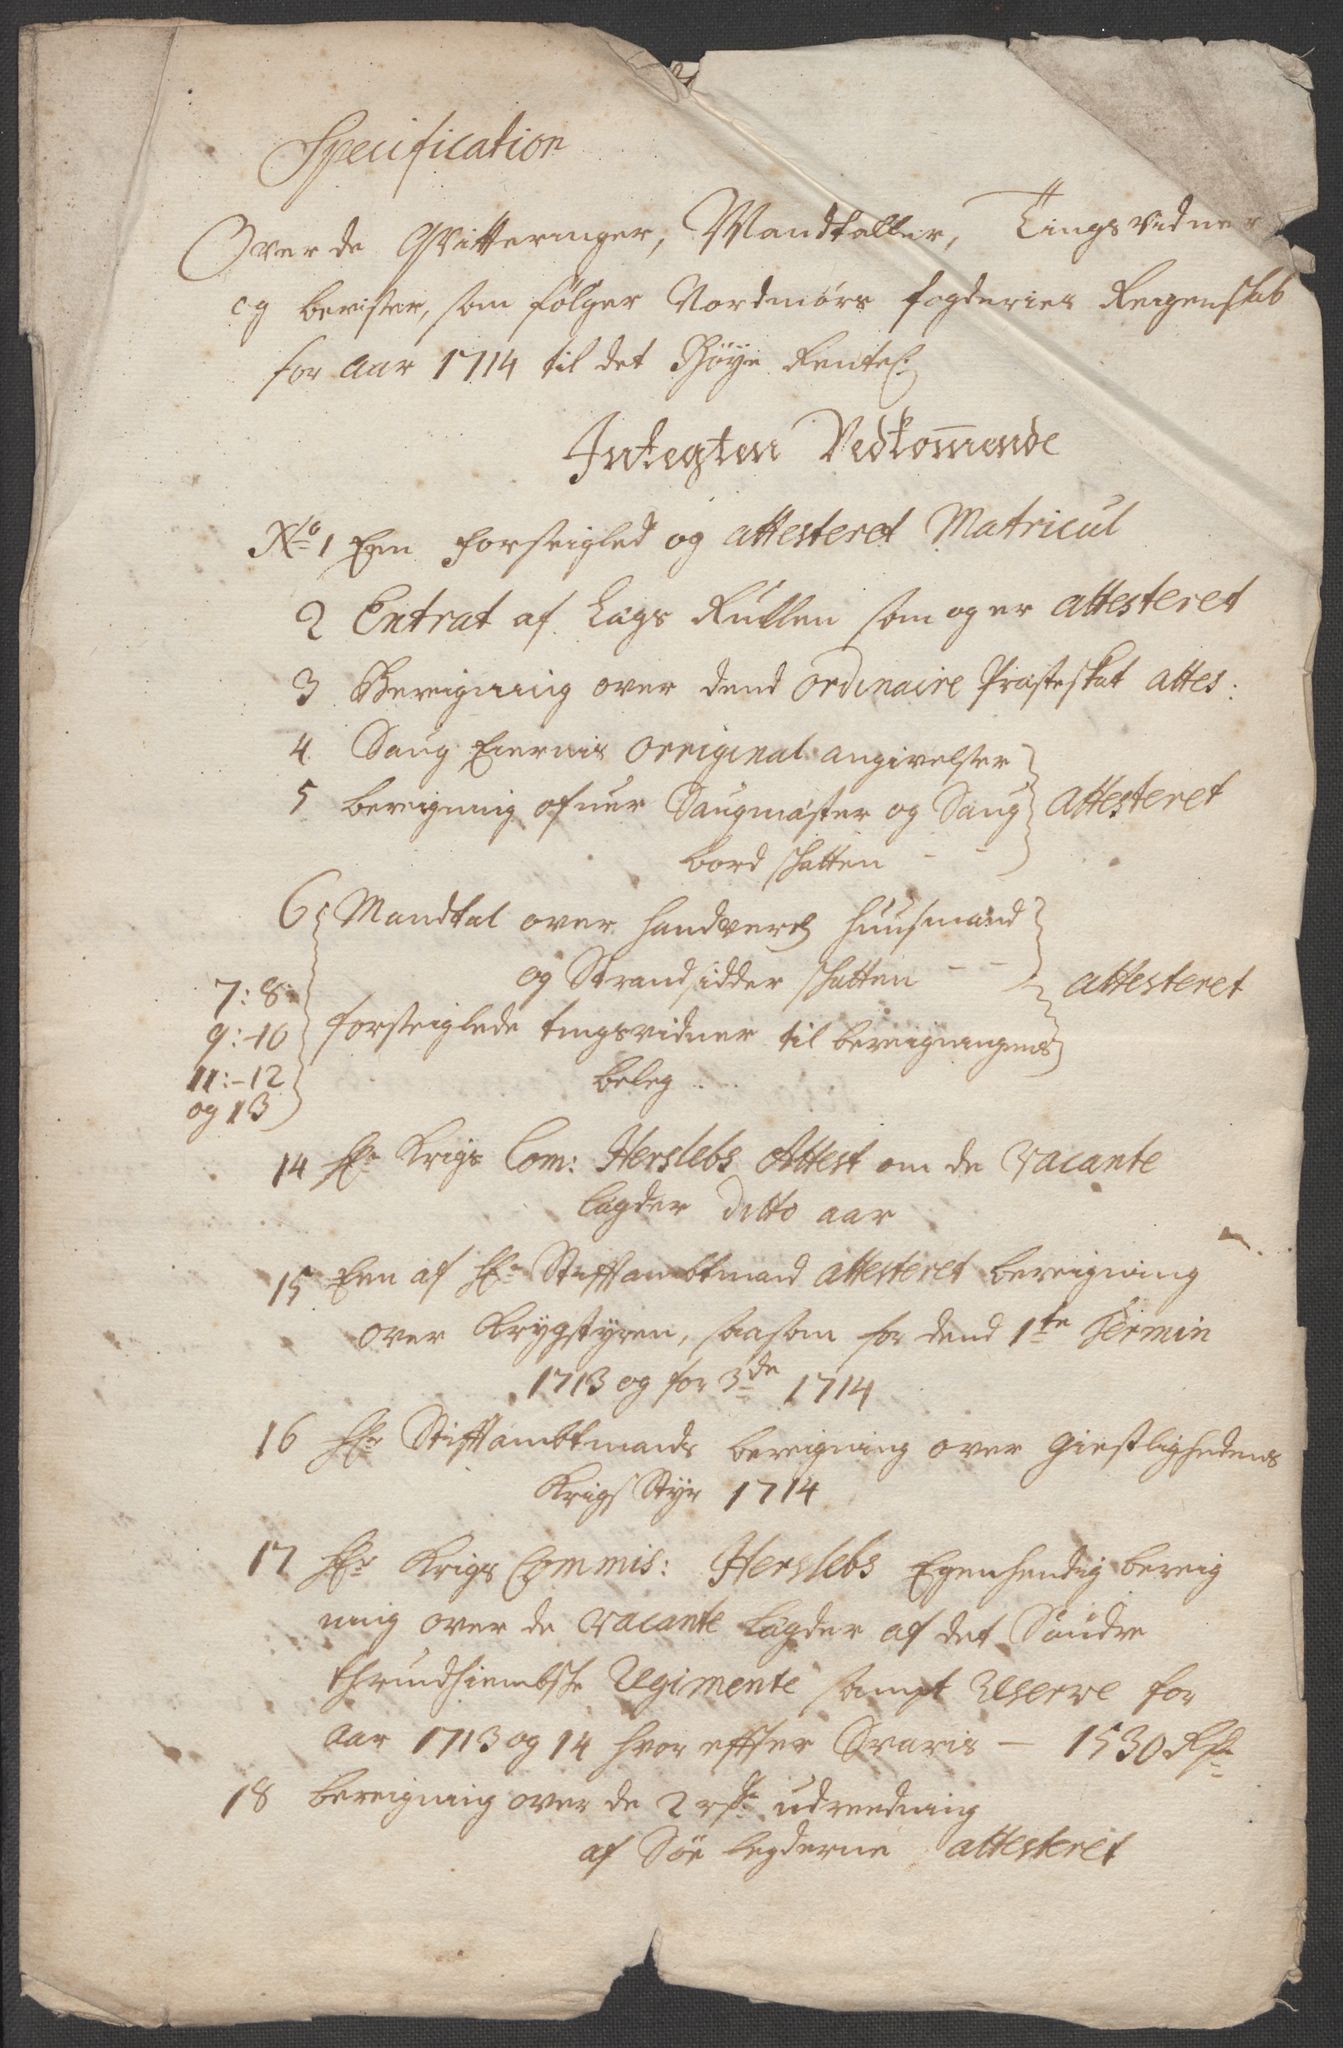 Specification
Over de Qvitteringer, Mandtaller, Tingsvidner
og beviser, som følger Nordmørs fogderies Regenskab
for aar 1714 til det Høye Rentec:
Indtegten Vedkom̄ende
No 1 Een forseigled og attesteret Matricul
2 Extrat af Lægs Rullen som og er attesteret
3 Bereigning over dend ordinaire Præsteskat attes:
4 Saug Eiernis original angivelser
5 bereigning ofuer Saugmæster og Saug attesteret
bord skatten - -
6 Mandtal over handverch huusmænd
og Strandsidder skatten - - attesteret
7: 8:
9: -10 forseiglede tingsvidner til bereigningens
11: -12 beleg
og 13
14 Hr Krigs Com: Herslebs Attest om de vacante
lægder ditto aar
15 Een af Hr Stiftambtmand attesteret bereigning
over Krygstyren, saasom for dend 1te Termin
1713 og for 3de 1714
16 Hr Stiftambtmands bereigning over Giestlighedens
Krigs Styr 1714
17 Hr Krigs Commis: Herslebs Egenhendig bereig
ning over de vacante Lægder af det Søndre
thrundhiembske Regimente sampt Reserve for
aar 1713 og 14 hvor effter Svaris - 1530 Rdr
18 bereigning over de 2 rdr udreedning
af Søe legderne attesteret